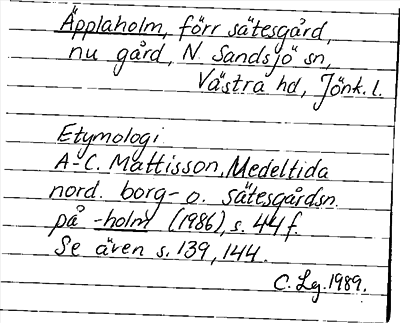 Äpplaholm, förr sätesgård,
nu gård, N. Sandsjö sn,
Västra hd, Jönk. l.
Etymologi.
A-C. Mattisson, Medeltida
nord. borg- o. sätesgårdsn.
på -holm (1986), s. 44 f.
Se även s. 139, 144.
C. Lg. 1989.